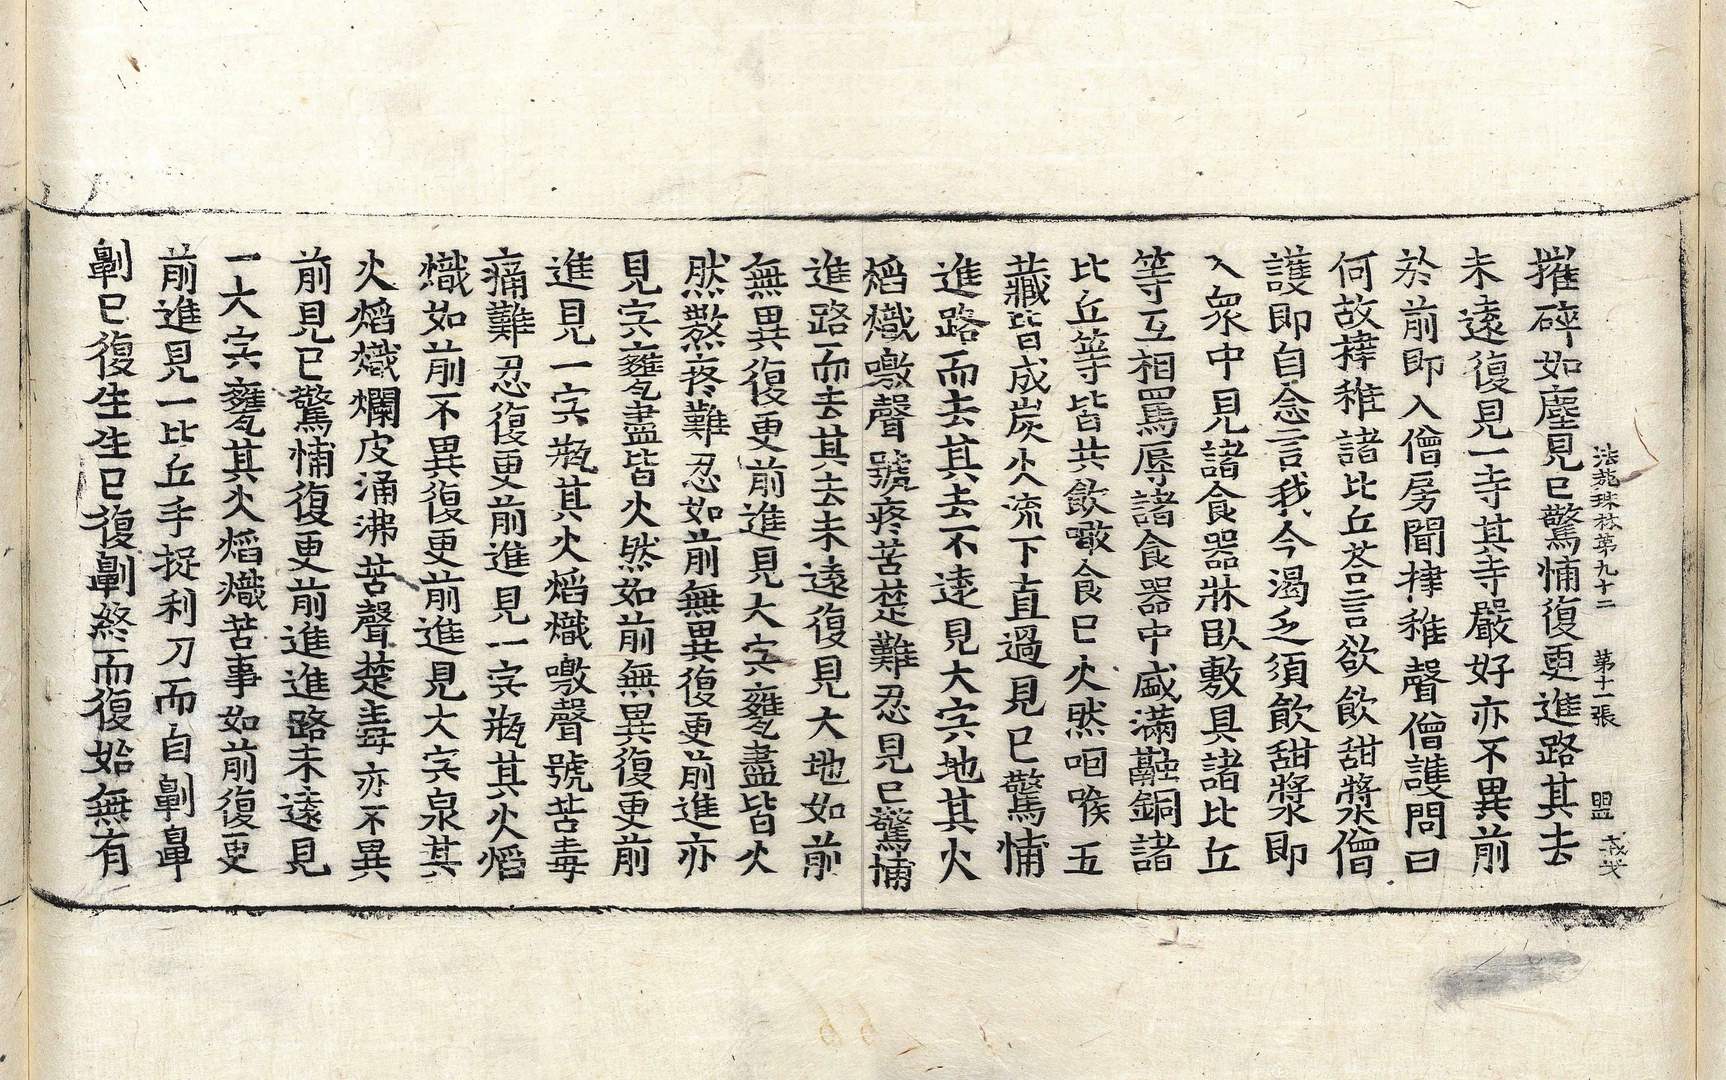 法苑珠林第九十二　第十一張　盟
摧碎如塵見已驚怖復更進路其去
未遠復見一寺其寺嚴好亦不異前
於前即入僧房聞揵稚聲僧護問曰
何故揵稚諸比丘荅言欲飲甜漿僧
護即自念言我今渴乏須飲甜漿即
入衆中見諸食器牀臥敷具諸比丘
等互相罵辱諸食器中盛滿融銅諸
比丘等皆共飲噉食已火然咽喉五
藏皆成炭火流下直過見已驚怖
進路而去其去不遠見大宍地其火
熖熾噭聲號疼苦楚難忍見已驚怖
進路而去其去未遠復見大地如前
無異復更前進見大宍甕盡皆火
然熬疼難忍如前無異復更前進亦
見宍甕盡皆火然如前無異復更前
進見一宍瓶其火熖熾噭聲號苦毒
痛難忍復更前進見一宍瓶其火熖
熾如前不異復更前進見大宍泉其
火熖熾爛皮涌沸苦聲楚毒亦不異
前見已驚怖復更前進進路未遠見
一大宍甕其火熖熾苦事如前復更
前進見一比丘手捉利刀而自劓鼻
劓已復生生已復劓終而復始無有